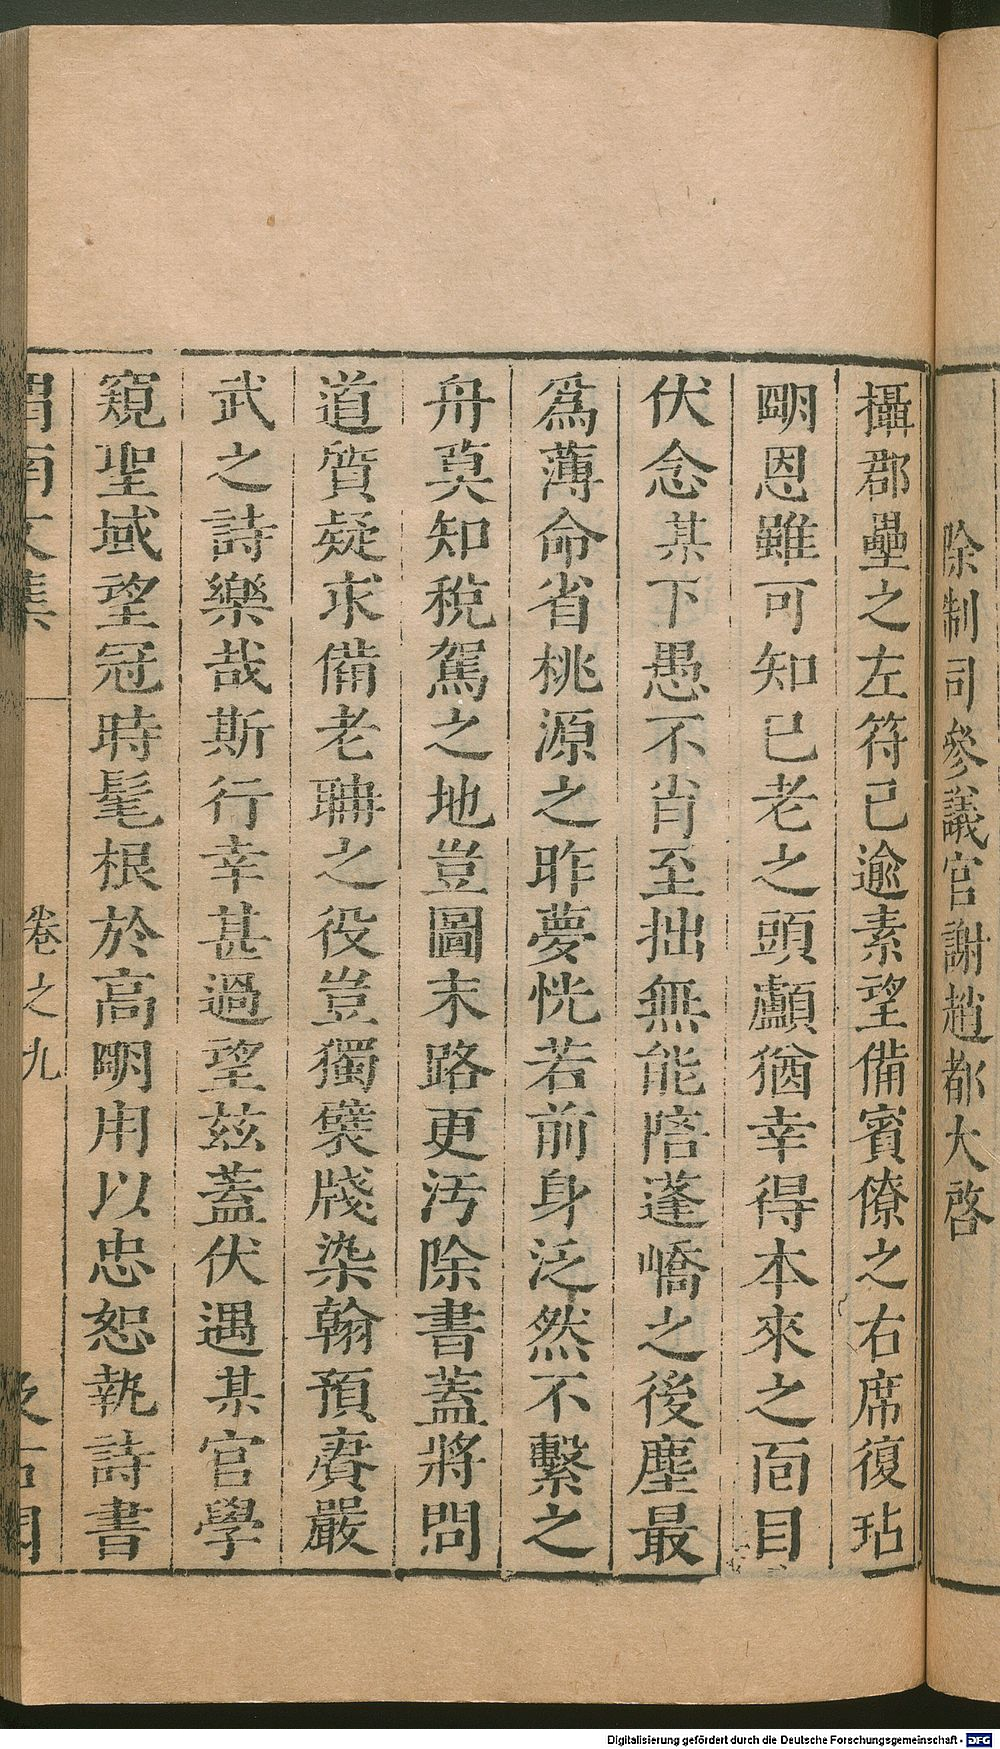 除制司參議官謝趙都大啓
攝郡壘之左符已逾素望備賓僚之右席復玷
明恩雖可知已老之頭顱猶幸得本來之面目
伏念某下愚不肖至拙無能陪蓬嶠之後塵最
爲薄命省桃源之昨夢恍若前身泛然不繫之
舟莫知稅駕之地豈圖末路更汚除書蓋將問
道質疑求備老聃之役豈獨襞牋染翰預賡嚴
武之詩樂哉斯行幸甚過望茲蓋伏遇某官學
窺聖域望冠時髦根於高明用以忠恕執詩書
渭南文集 卷之九 汲古閣
Digitalisierung gefördert durch die Deutsche Forschungsgemeinschaft - DFG